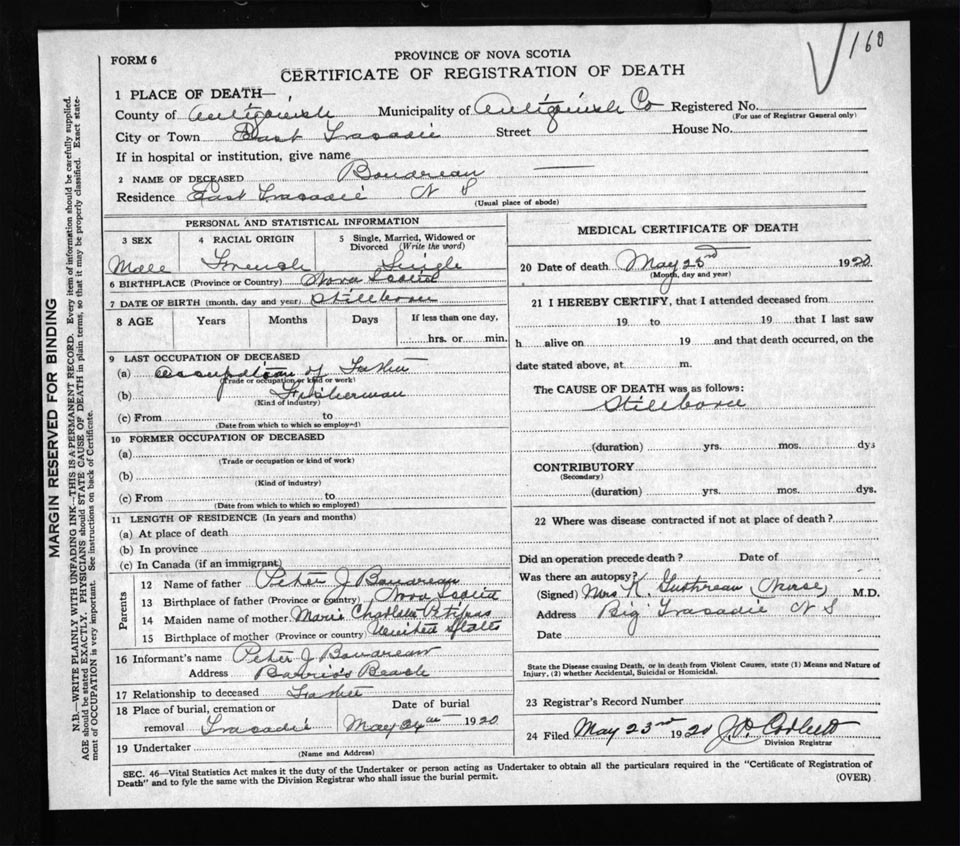 160
FORM 6
PROVINCE OF NOVA SCOTIA
CERTIFICATE OF REGISTRATION OF DEATH
1 PLACE OF DEATH—
County of Antigonish Municipality of Antigonish Co Registered No.
(For use of Registrar General only)
City or Town East Tracadie Street House No.
If in hospital or institution, give name
2 NAME OF DECEASED Boudreau
Residence East Tracadie N S
(Usual place of abode)
PERSONAL AND STATISTICAL INFORMATION
3 SEX 4 RACIAL ORIGIN 5 Single, Married, Widowed or Divorced (Write the word)
Male French Single
6 BIRTHPLACE (Province or Country) Nova Scotia
7 DATE OF BIRTH (month, day and year) Stillborn
8 AGE Years Months Days If less than one day,
hrs. or min.
9 LAST OCCUPATION OF DECEASED
(a) occupation of Father
(Trade or occupation or kind or work)
(b) Fisherman
(Kind of industry)
(c) From to
(Date from which to which so employed)
10 FORMER OCCUPATION OF DECEASED
(a)
(Trade or occupation or kind of work)
(b)
(Kind of industry)
(c) From to
(Date from which to which so employed)
11 LENGTH OF RESIDENCE (In years and months)
(a) At place of death
(b) In province
(c) In Canada (if an immigrant)
Parents
12 Name of father Peter J Boudreau
13 Birthplace of father (Province or country) Nova Scotia
14 Maiden name of mother Marie
15 Birthplace of mother (Province or country) United States
16 Informant's name Peter J Boudreau
Address Barrio's Beach
17 Relationship to deceased Father
18 Place of burial, cremation or removal Tracadie
Date of burial May 24th 1920
19 Undertaker
(Name and Address)
MEDICAL CERTIFICATE OF DEATH
20 Date of death May 23rd 1920
(Month, day and year)
21 I HEREBY CERTIFY, that I attended deceased from
19 to 19 that I last saw
h alive on 19 and that death occurred, on the
date stated above, at m.
The CAUSE OF DEATH was as follows:
Stillborn
(duration) yrs. mos. dys
CONTRIBUTORY
(Secondary)
(duration) yrs. mos. dys.
22 Where was disease contracted if not at place of death?
Did an operation precede death? Date of
Was there an autopsy?
(Signed) Mrs K. (Nurse) M.D.
Address Big Tracadie N S
Date
State the Disease causing Death, or in death from Violent Causes, state (1) Means and Nature of
Injury, (2) whether Accidental, Suicidal or Homicidal.
23 Registrar's Record Number
24 Filed May 23rd 1920
Division Registrar
SEC. 46—Vital Statistics Act makes it the duty of the Undertaker or person acting as Undertaker to obtain all the particulars required in the "Certificate of Registration of
Death" and to fyle the same with the Division Registrar who shall issue the burial permit.
(OVER)
MARGIN RESERVED FOR BINDING
N.B.—WRITE PLAINLY WITH UNFADING INK—THIS IS A PERMANENT RECORD. Every item of information should be carefully supplied.
AGE should be stated EXACTLY. PHYSICIANS should STATE CAUSE OF DEATH in plain terms, so that it may be properly classified. Exact state-
ment of OCCUPATION is very important. See instructions on back of Certificate.